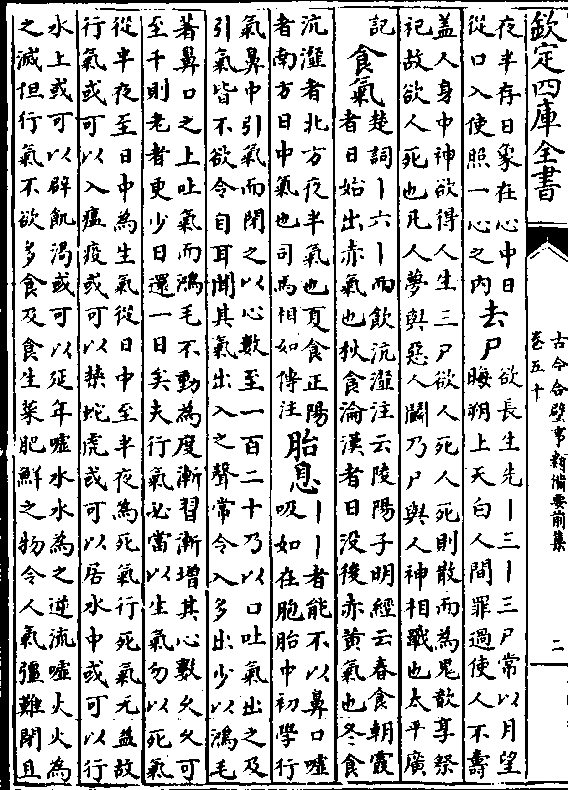 欽定四庫全書
古今合璧事類備要前集
卷五十
二
夜半存日象在心中日
從口入使照一心之内
去尸
欲長生先丨三丨三尸常以月望
晦朔上天白人間罪過使人不壽
盖人身中神欲得人生三尸欲人死人死則散而為鬼歆享祭
祀故欲人死也凡人夢與惡人鬭乃尸與人神相戰也太平廣
記
食氣
楚詞丨六丨而飲沆瀣注云陵陽子明經云春食朝霞
者日始出赤氣也秋食淪漢者日没後赤黄氣也冬食
沆瀣者北方夜半氣也夏食正陽
者南方日中氣也司馬相如傳注
胎息
丨丨者能不以鼻口噓
吸如在胞胎中初學行
氣鼻中引氣而閉之以心數至一百二十乃以口吐氣出之及
引氣皆不欲令自耳聞其氣出入之聲常令入多出少以鴻毛
著鼻口之上吐氣而鴻毛不動為度漸習漸增其心數久久可
至千則老者更少日還一日矣夫行氣必當以生氣勿以死氣
從半夜至日中為生氣從日中至半夜為死氣行死氣无益故
行氣或可以入瘟疫或可以禁蛇虎或可以居水中或可以行
水上或可以辟飢渴或可以延年噓水水為之逆流噓火火為
之滅但行氣不欲多食及食生菜肥鮮之物令人氣彊難閉且